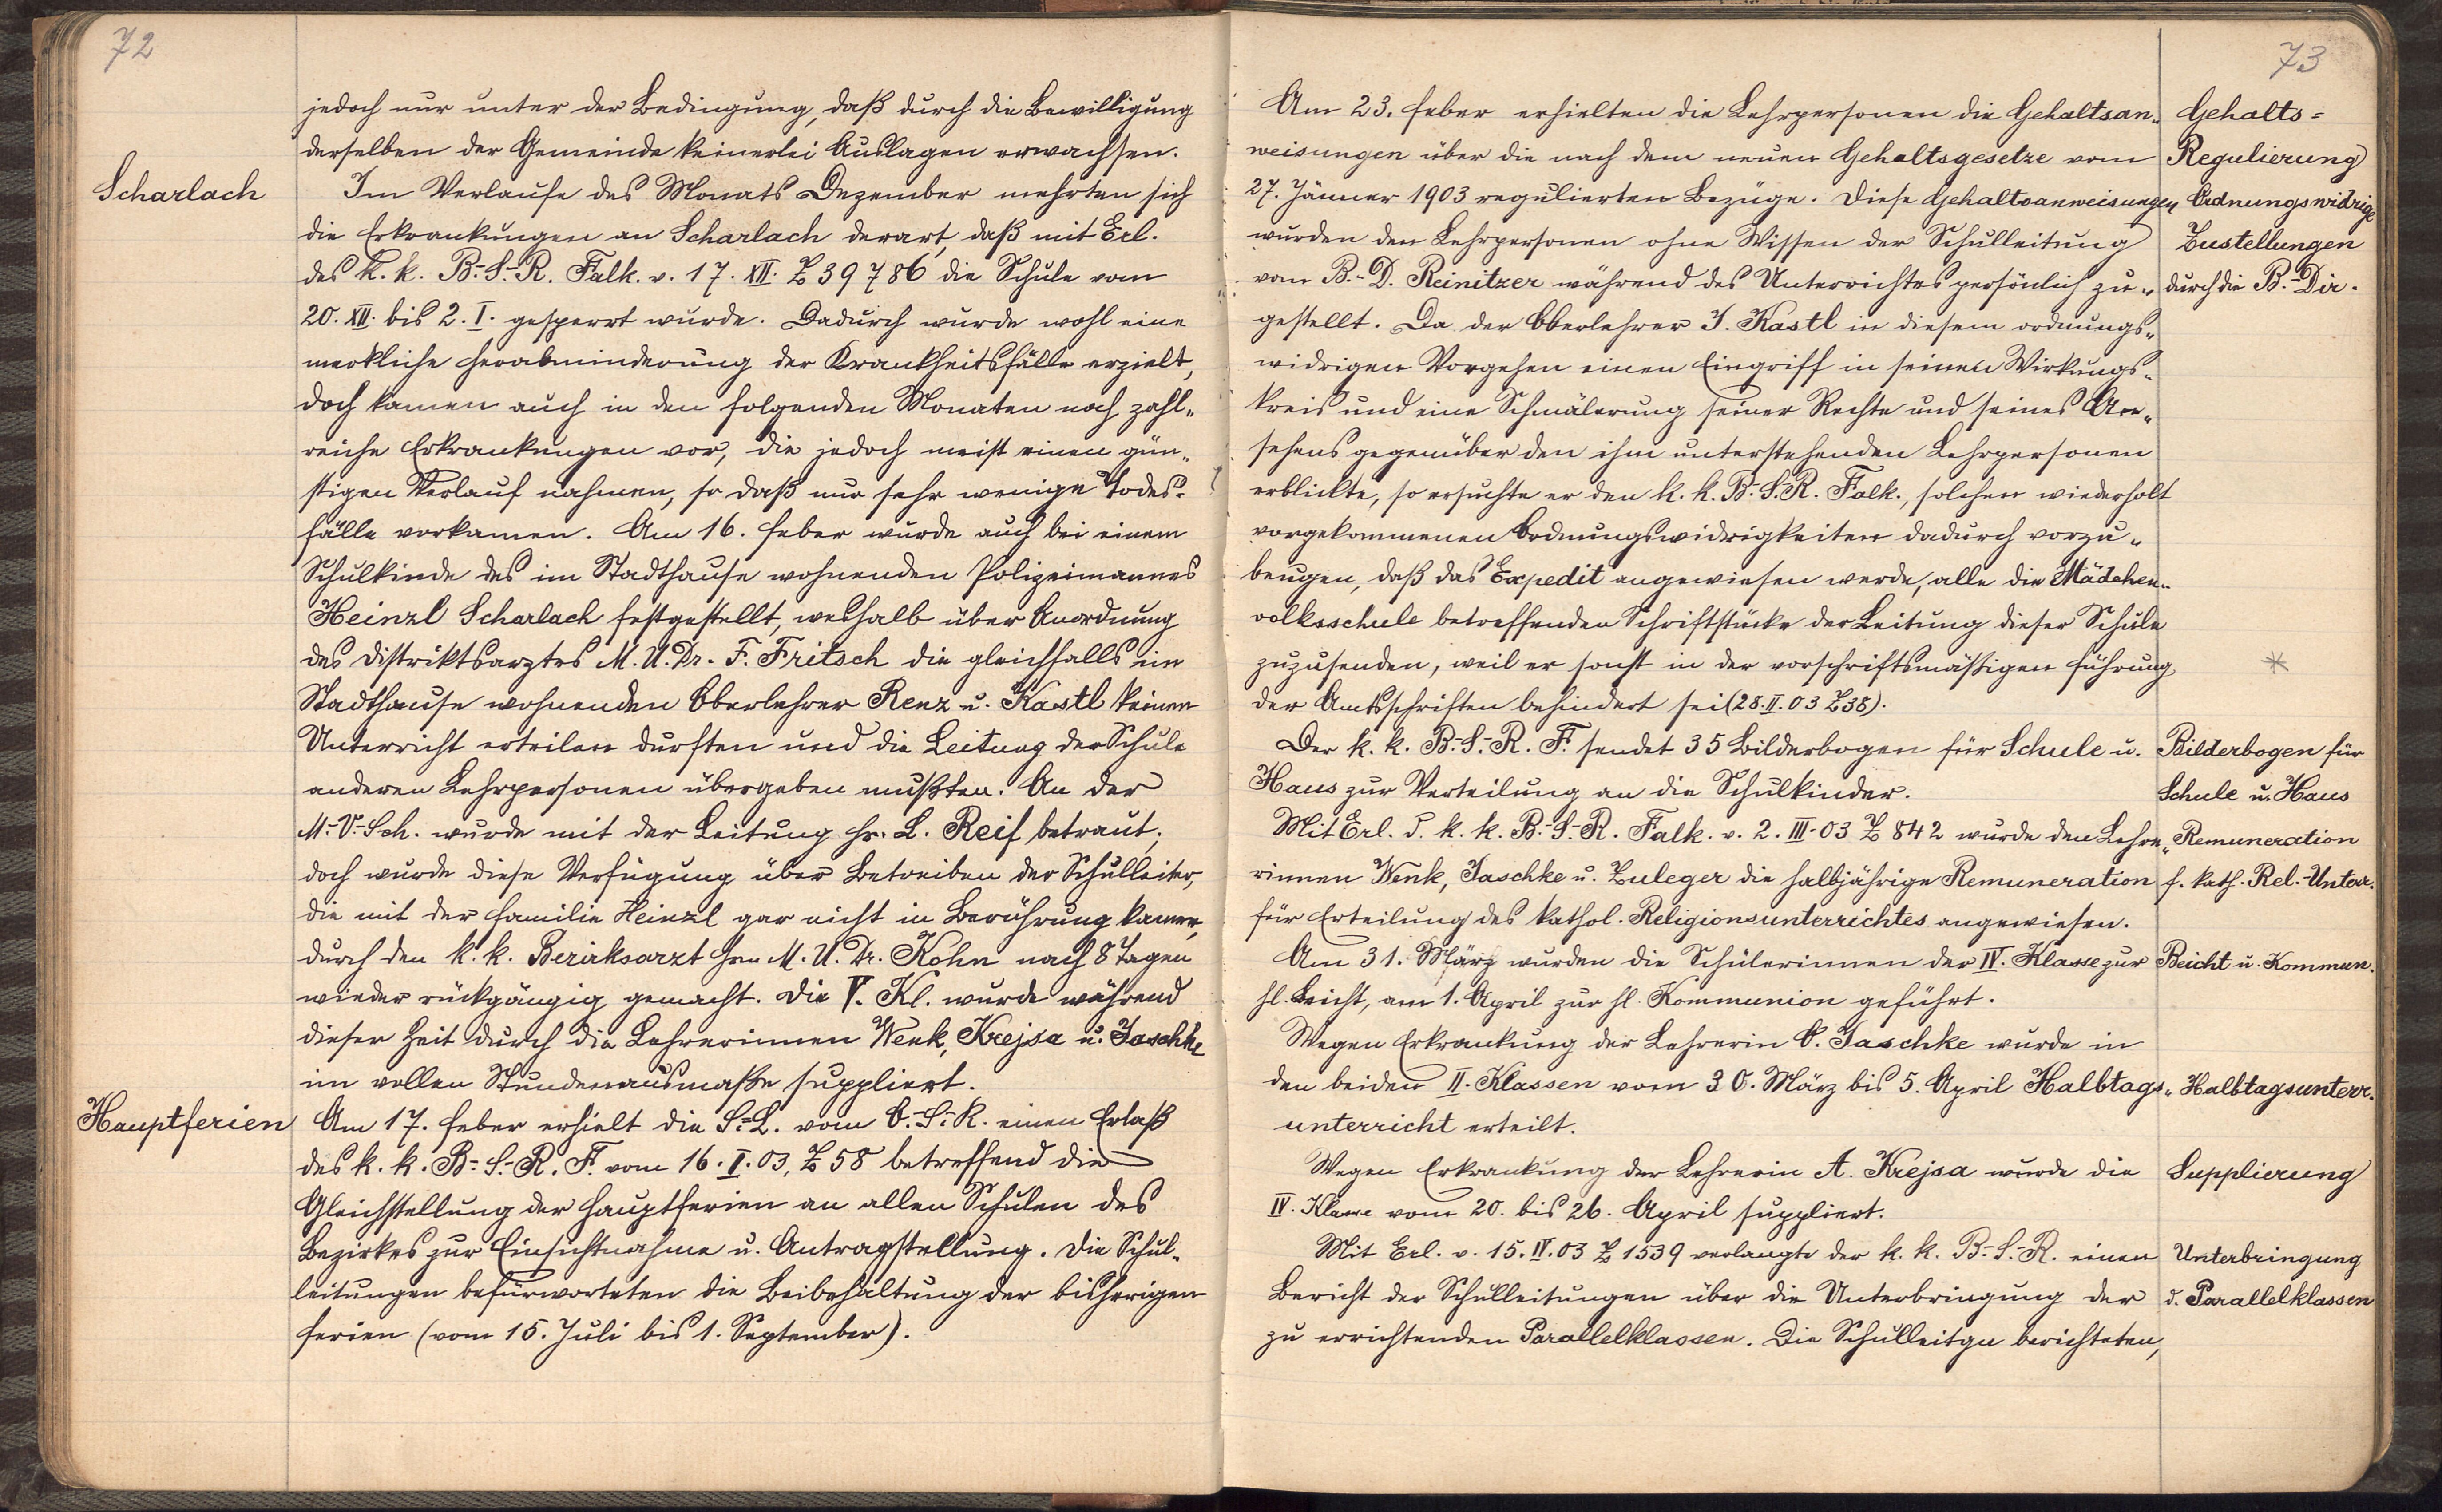 72
jedoch nur unter der Bedingung, daß durch die Bewilligung
derselben der Gemeinde keinerlei Auslagen erwachsen.
Scharlach
Im Verlaufe des Monats Dezember mehrten sich
die Erkrankungen an Scharlach derart, daß mit Erl.
des k. k. B.-S.-R. Falk. v. 17. XII. Z 39786 die Schule vom
20. XII. bis 2. I. gesperrt wurde. Dadurch wurde wohl eine
merkliche Herabminderung der Krankheitsfälle erzielt,
doch kamen auch in den folgenden Monaten noch zahl„
reiche Erkrankungen vor, die jedoch meist einen gün„
stigen Verlauf nahmen, so daß nur sehr wenige Todes-
fälle vorkamen. Am 16. Feber wurde auch bei einem
Schulkinde des im Stadthause wohnenden Polizeimannes
Heinzl Scharlach festgestellt, weshalb über Anordnung
des Distriktsarztes M. U. Dr. F. Fritsch die gleichfalls im
Stadthause wohnenden Oberlehrer Renz u. Kastl keinen
Unterricht erteilen durften und die Leitung der Schule
anderen Lehrpersonen übergeben mußten. An der
M.-V.-Sch. wurde mit der Leitung Hr. L. Reif betraut;
doch wurde diese Verfügung über Betreiben der Schulleiter,
die mit der Familie Heinzl gar nicht in Berührung kamen,
durch den k. k. Bezirksarzt Hrn M. U. Dr. Kohn nach 8 Tagen
wieder rückgängig gemacht. Die V. Kl. wurde während
dieser Zeit durch die Lehrerinnen Wenk, Krejsa u. Jaschke
im vollen Stundenausmaße suppliert.
Hauptferien
Am 17. Feber erhielt die S.-L. vom O.-S.-R. einen Erlaß
des k. k. B.-S.-R. F. vom 16. I. 03, Z 58 betreffend die
Gleichstellung der Hauptferien an allen Schulen des
Bezirkes zur Einsichtnahme u. Antragstellung. Die Schul-
leitungen befürworteten die Beibehaltung der bisherigen
Ferien (vom 15. Juli bis 1. September).
73
Am 23. Feber erhielten die Lehrpersonen die Gehaltsan„
weisungen über die nach dem neuen Gehaltsgesetze vom
27. Jänner 1903 regulierten Bezüge. Diese Gehaltsanweisungen
wurden den Lehrpersonen ohne Wissen der Schulleitung
vom B.-D. Reinitzer während des Unterrichtes persönlich zu„
gestellt. Da der Oberlehrer J. Kastl in diesem ordnungs„
widrigen Vorgehen einen Eingriff in seinen Wirkungs-
kreis und eine Schmälerung seiner Rechte und seines An„
sehens gegenüber den ihm unterstehenden Lehrpersonen
erblickte, so ersuchte er den k. k. B.-S.-R. Falk., solchen wiederholt
vorgekommenen Ordnungswidrigkeiten dadurch vorzu„
beugen, daß das Expedit angewiesen werde, alle die Mädchen„
volksschule betreffenden Schriftstücke der Leitung dieser Schule
zuzusenden, weil er sonst in der vorschriftsmäßigen Führung
der Amtsschriften behindert sei (28. II. 03 Z 38).
Der k. k. B.-S.-R. F. sendet 35 Bilderbogen für Schule u.
Haus zur Verteilung an die Schulkinder.
Mit Erl. d. k. k. B.-S.-R. Falk. v. 2. III. 03 Z 842 wurde den Lehre„
rinnen Wenk, Jaschke u. Zuleger die halbjährige Remuneration
für Erteilung des kathol. Religionsunterrichtes angewiesen.
Am 31. März wurden die Schülerinnen der IV. Klasse zur
hl. Beicht, am 1. April zur hl. Kommunion geführt.
Wegen Erkrankung der Lehrerin O. Jaschke wurde in
den beiden II. Klassen vom 30. März bis 5. April Halbtags„
unterricht erteilt.
Wegen Erkrankung der Lehrerin A. Krejsa wurde die
IV. Klasse vom 20. bis 26. April suppliert.
Mit Erl. v. 15. IV. 03 Z 1539 verlangte der k. k. B.-S.-R. einen
Bericht der Schulleitungen über die Unterbringung der
zu errichtenden Parallelklassen. Die Schulleitgn berichteten,
Gehalts=
Regulierung
Ordnungswidrige
Zustellungen
durch die B.-Dir.
*
Bilderbogen für
Schule u. Haus
Remuneration
f. kath. Rel.-Unterr.
Beicht u. Kommun.
Halbtagsunterr.
Supplierung
Unterbringung
d. Parallelklassen